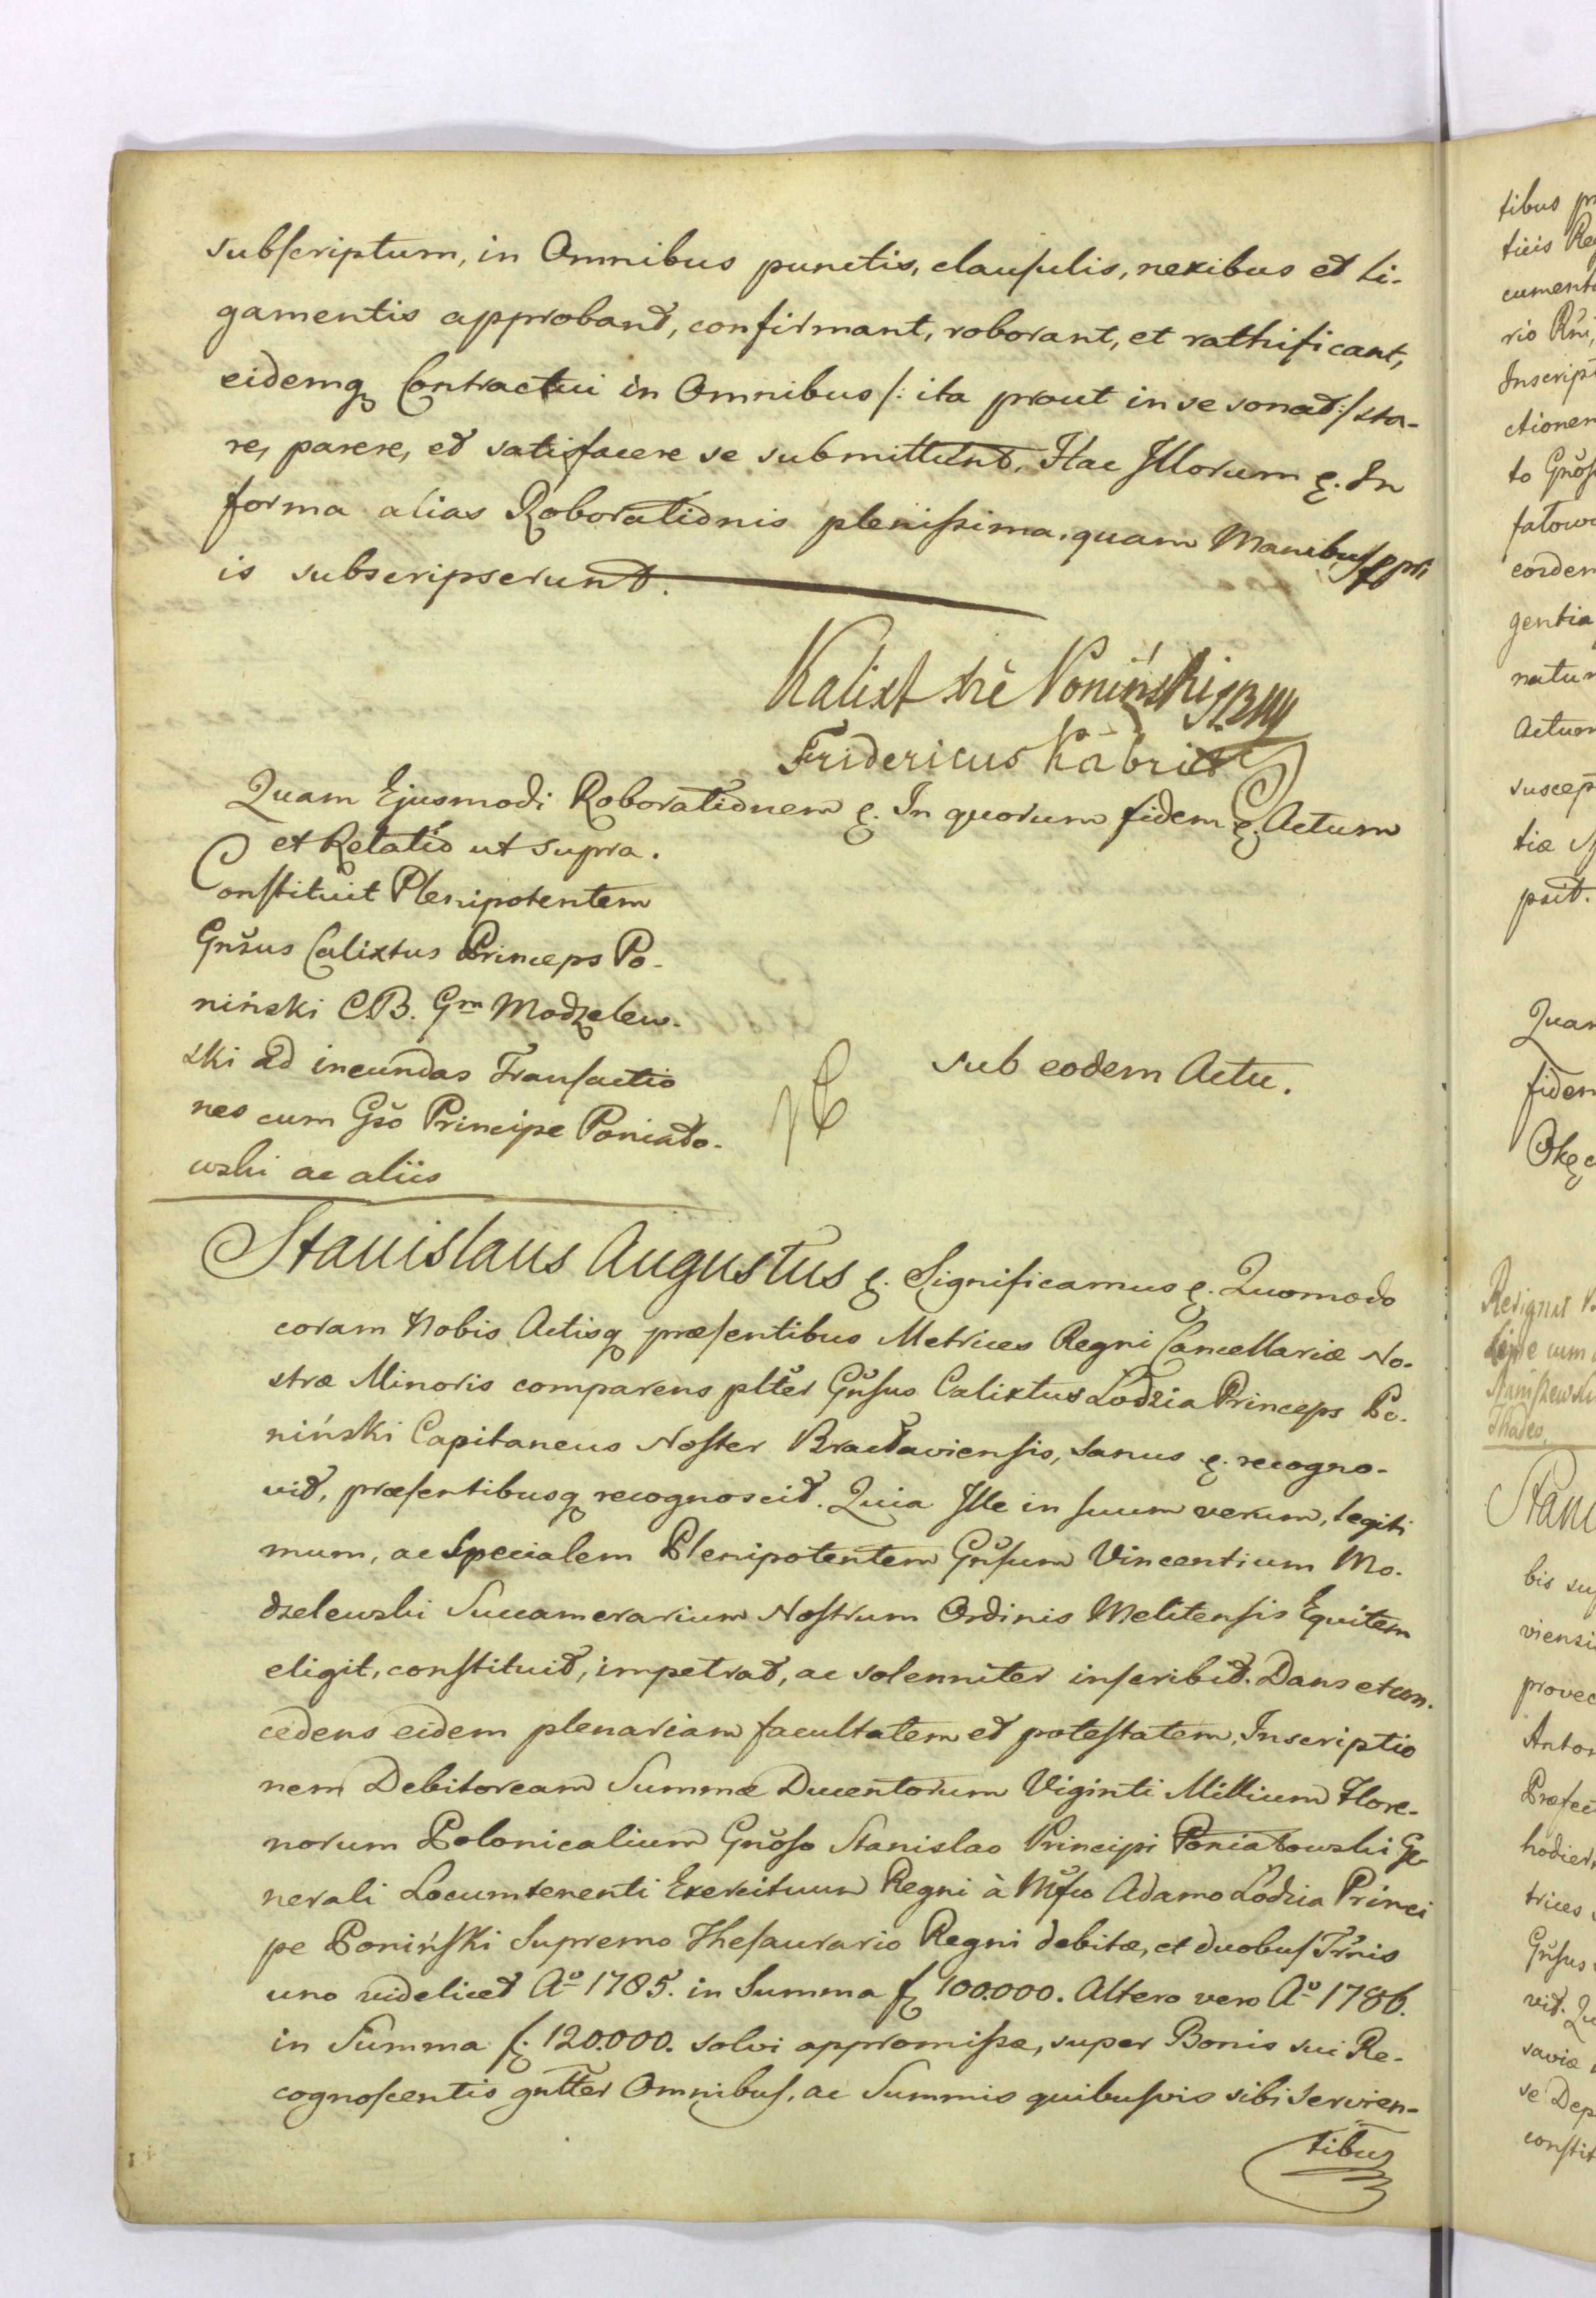 subscriptum, in Omnibus punctis, clausulis, nexibus et Li-
gamentis approbant, confirmant, roborant, et rathificant,
eidemq Contractui in Omnibus /: ita prout in se sonat :/ sta-
re, parere, et satisfacere se submittunt, Hac Illorum &. In
forma alias Roborationis plenissima, quam Manibus ppri
is subscripserunt.
Kalixt Xże Poniński SBM
Fridericus Kabrit
Quam Ejusmodi Roborationem &. In quorum fidem &. Actum
et Relatio ut supra.
Constituit Plenipotentem
Gnsus Calixtus Princeps Po-
niński C.B. Gm Modzelew-
ski ad ineundas Transactio
nes cum Gso Principe Poniato-
wski ac aliis
sub eodem Actu.
Stanislaus Augustus &. Significamus &. Quomodo
coram Nobis Actisq præsentibus Metrices Regni Cancellariæ No-
stræ Minoris comparens plter Gnsus Calixtus Lodzia Princeps Po-
niński Capitaneus Noster Bractaviensis, sanus &. recogno-
vit, præsentibusq recognoscit. Quia Ille in suum verum, legiti
mum, ac Specialem Plenipotentem Gnsum Vincentium Mo-
dzelewski Succamerarium Nostrum Ordinis Melitensis Equitem
eligit, constituit, impetrat, ac solenniter inscribit. Dans et con-
cedens eidem plenariam facultatem et potestatem, Inscriptio
nem Debitoream Summæ Ducentorum Viginti Millium Flore-
norum Polonicalium Gnoso Stanislao Principi Poniatowski Ge-
nerali Locumtenenti Exercituum Regni à Mfco Adamo Lodzia Princi
pe Poniński Supremo Thesaurario Regni debitæ, et duobus Trnis
uno videlicet Ao 1785. in Summa f 100.000. Altero vero Ao 1786.
in Summa f. 120.000. solvi appromissæ, super Bonis sui Re-
cognoscentis gnlter Omnibus, ac Summis quibusvis sibi servien-
tibus